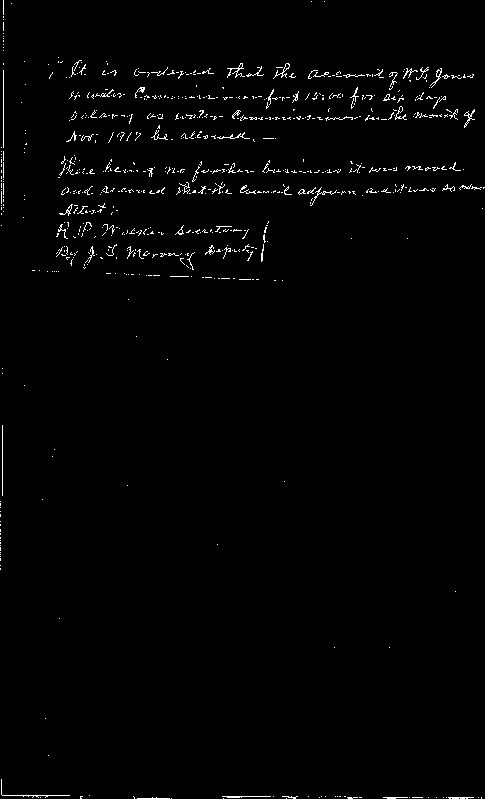 It is ordered that the account of W. G. Jones
ex water Commissioner for $15.00 for six days
salary as water Commissioner in the month of
Nov, 1917 be allowed. —
There being no further business it was moved
and seconed that the Council adjourn and it was so
Attest:
R. P. Secretary
By J. T. Deputy